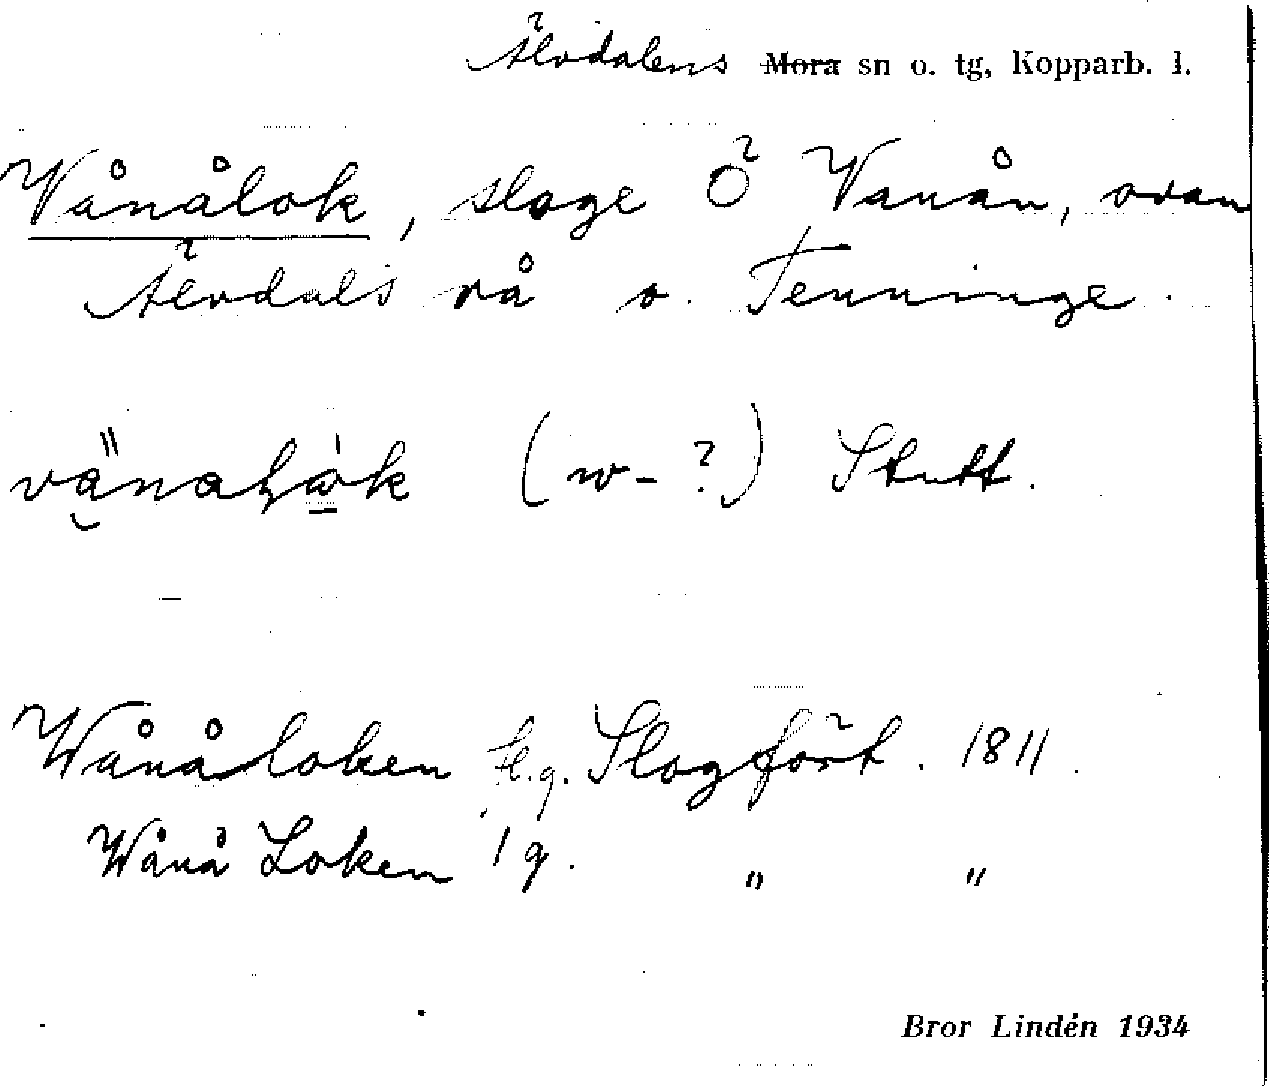 Älvdalens Mora sn o. tg, Kopparb. l.
Vånålok, sloge Ö Vanån, ovan
Älvdals rå o. Tenninge.
(w-?) Stutt.
Wånåloken fl.g. Slogfört. 1811.
Wånå Loken 1 g. " "
Bror Lindén 1934